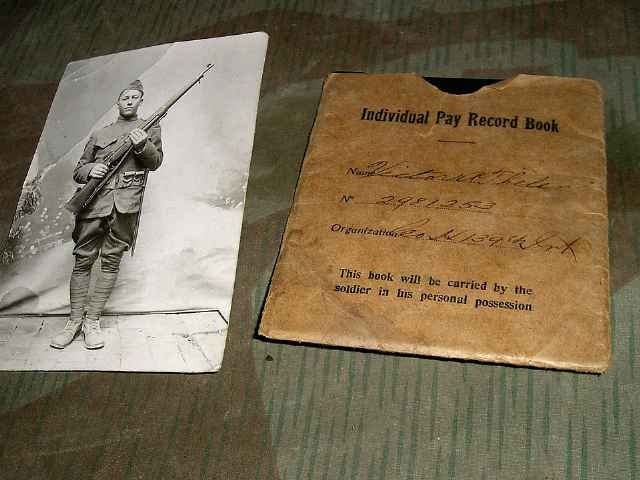 Individual Pay Record Book
Name Victor
Nº 2981253
Organization Co M 139th Inf
This book will be carried by the
soldier in his personal possession